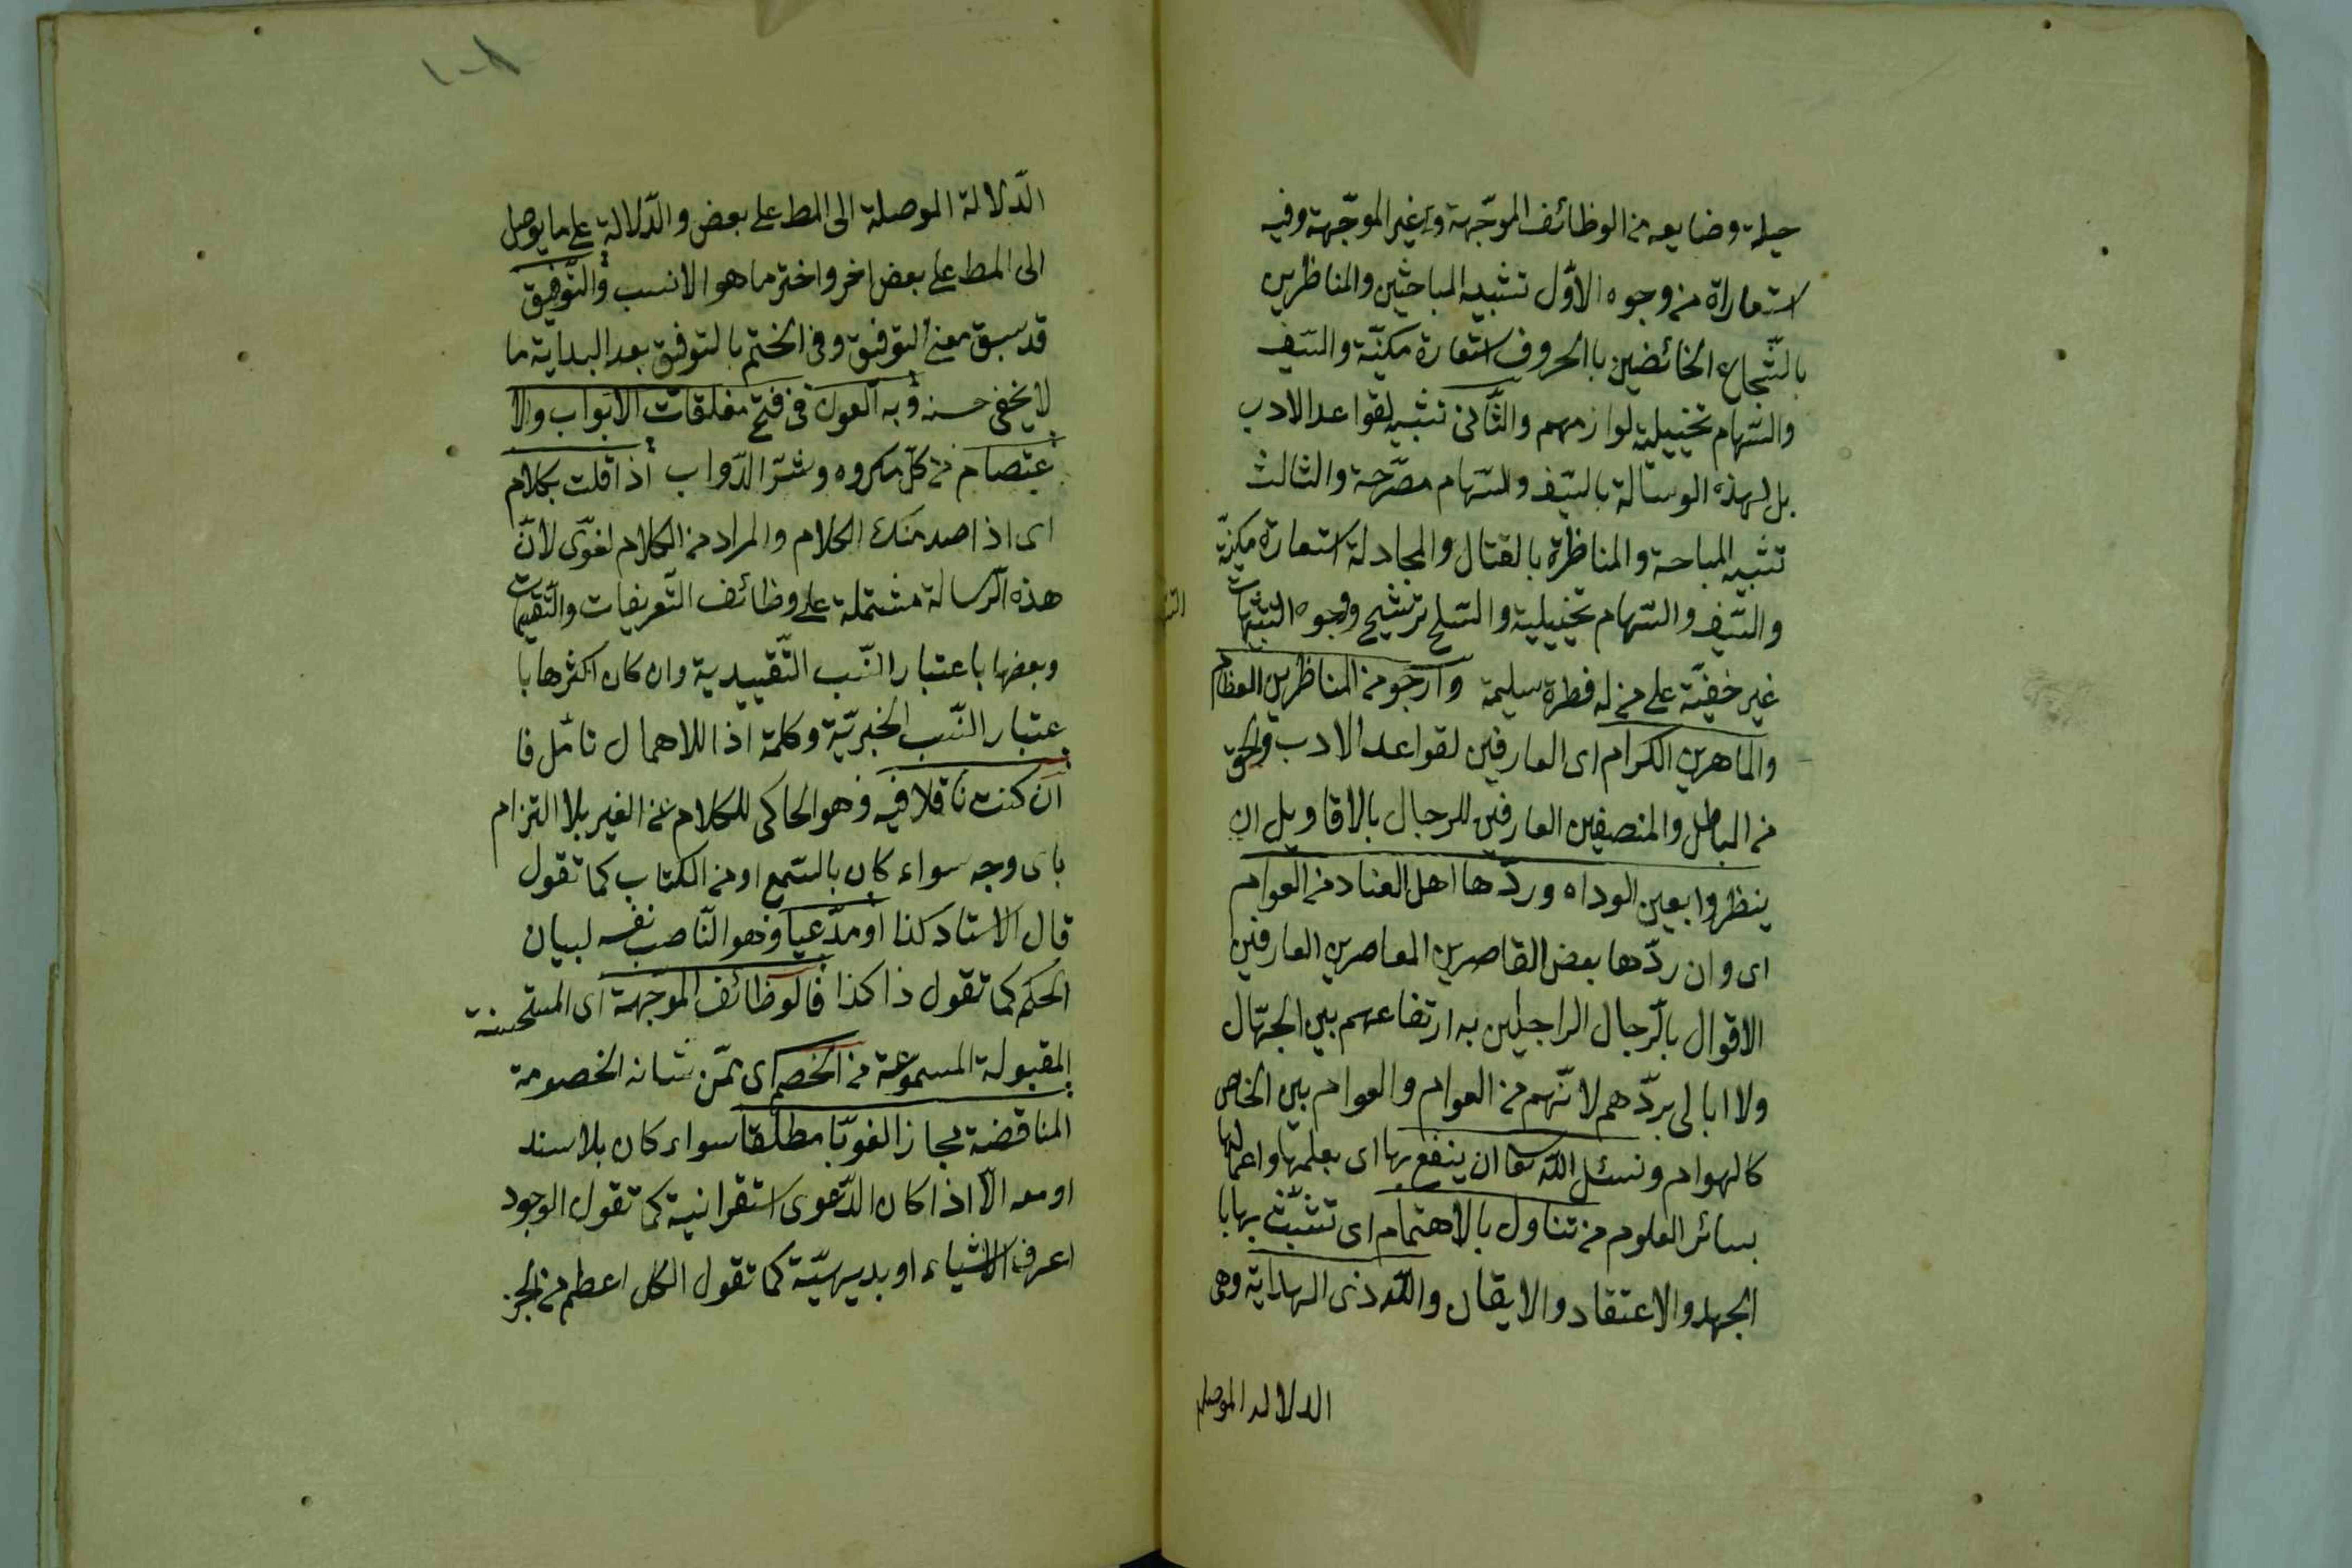 حيلة وضايعه من الوظائف الموجّهة وغير الموجّهة وفيه
استعاراة من وجوه الاوّل تشبيه المباحثين والمناظرين
بالشّجاع الخائضين بالحروف استعارة مكنيّة والسّيف
والسّهام تخييلية لوازمهم والثّانى تشبيه لقواعد الادب
بل لهذه الوسالة بالسّيف والسّهام مصرّحة والثالث
تشبيه المباحة والمناظرة بالقتال والمجادلة استعارة مكنيّة
والسّيف والسّهام تخييلية والسّلح ترشيح ووجوه التشبيهات
غير خفيّة على من له فطرة سليمة وارجو من المناظرين العظام
والماهرين الكرام اى العارفين لقواعد الادب والحق
من الباطل والمنصفين العارفين للرجال بالاقاويل ان
ينظروا بعين الوداه وردّها اهل العناد من العوام
اى وان ردّها بعض القاصرين المعاصرين العارفين
الاقوال بالرّجال الراجلين به ارتفاعهم بين الجهّال
ولا ابالى بردّهم لانّهم من العوام والعوام بين الخاص
كالهوام ونسئل اللّه تعا ان ينفع بها اى بعلمها واعمالها
بسائر العلوم من تناول بالاهتمام اى تشبّث بها با
الجهد والاعتقاد والايقان واللّه ذى الهداية وهى
الدلالة الموصلة
١٠٨
الدّلالة الموصلة الى المط على بعض والدّلالة على ما يوصل
الى المط على بعض اخر واختر ما هو الانسب والتّوفيق
قد سبق معنى التوفيق وفى الختم بالتوفيق بعد البداية ما
لا يخفى حسنه وبه العون فى فتح مغلقات الابواب والا
عتصام من كلّ مكروه وشرّ الدّواب اذا قلت بكلام
اى اذا صدر منك الكلام والمراد من الكلام لغوّى لانّ
هذه الرّسالة مشتملة على وظائف التّعريفات والتّقسيمات
وبعضها باعتبار النّسب التّقييدية وان كان اكثرها با
عتبار النّسب الخبريّة وكلمة اذا للاهمال تأمّل فا
ان كنت ناقلا فيه وهو الحاكى للكلام عن الغير بلا التزام
باى وجه سواء كان بالسّمع او من الكتاب كما تقول
قال الاستاد كذا او مدّعيا وهو النّاصب نفسه لبيان
الحكم كما تقول ذا كذا فالوظائف الموجّهة اى المستحسنة
المقبولة المسموعة من الخصم اى ممّن شانه الخصومة
المناقضة مجازا لغويّا مطلقا سواء كان بلا سند
او معه الّا اذا كان الدّعوى استقرانية كما تقول الوجود
اعرف الاشياء او بديهيّة كما تقول الكل اعظم من الجزء